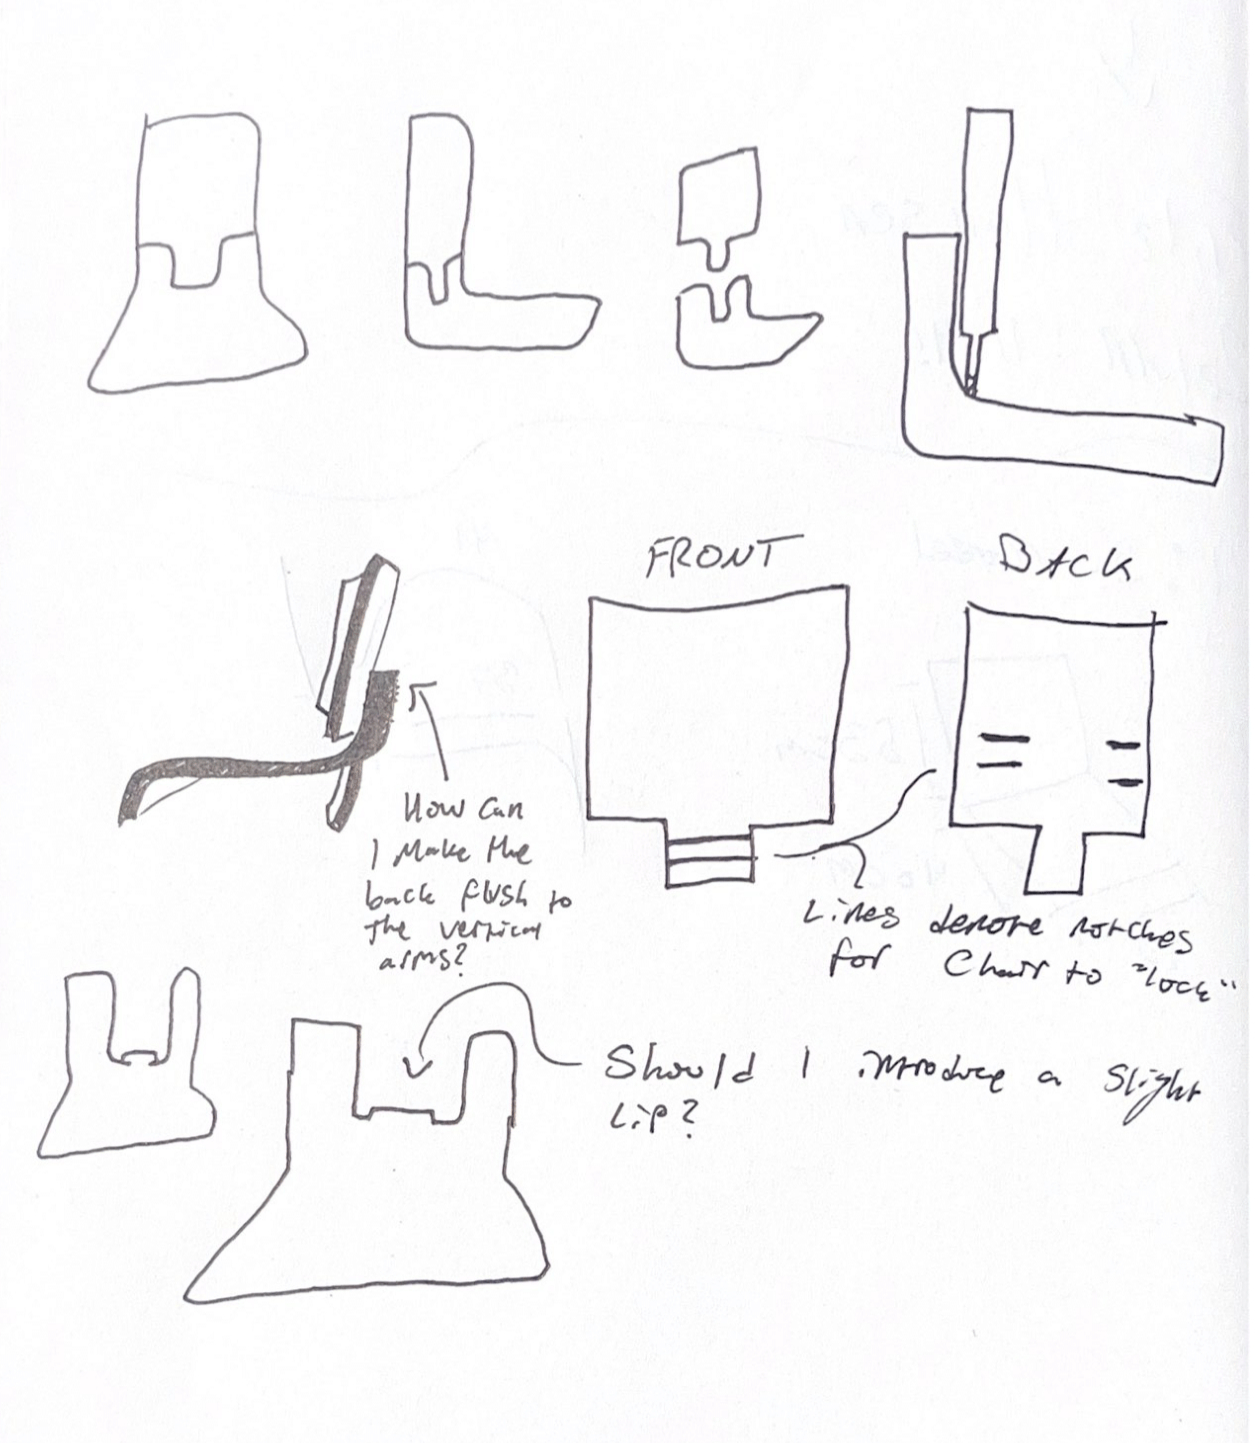 FRONT
BACK
How can
I make the
back flush to
the vertical
arms?
Lines denote notches
for Chair to "lock"
Should I introduce a slight
Lip?